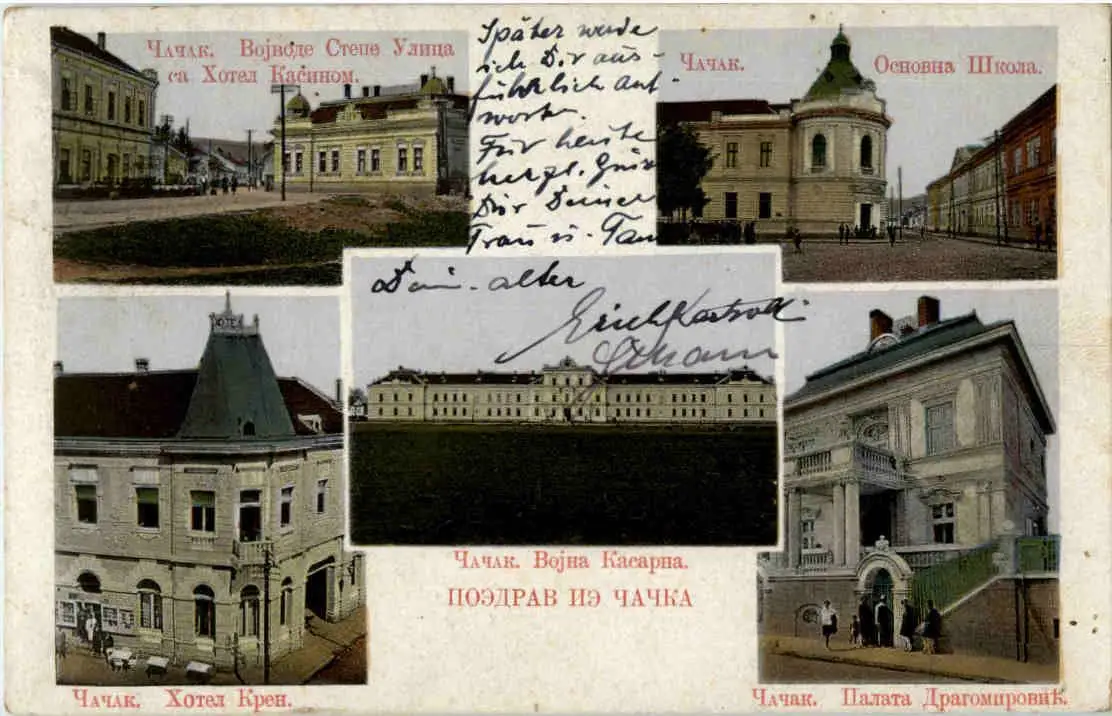 Чачак. Војводе Степе Улица
са Хотел Касином.
Später werde
ich Dir aus-
führlich ant-
worten.
Für heute
herzl. Grüße
Dir Deiner
Frau u. Fam
Чачак. Основна Школа.
Dein alter
Erich
Чачак. Војна Касарна.
ПОЭДРАВ ИЭ ЧАЧКА
Чачак. Хотел Крен.
Чачак. Палата Драгомировић.